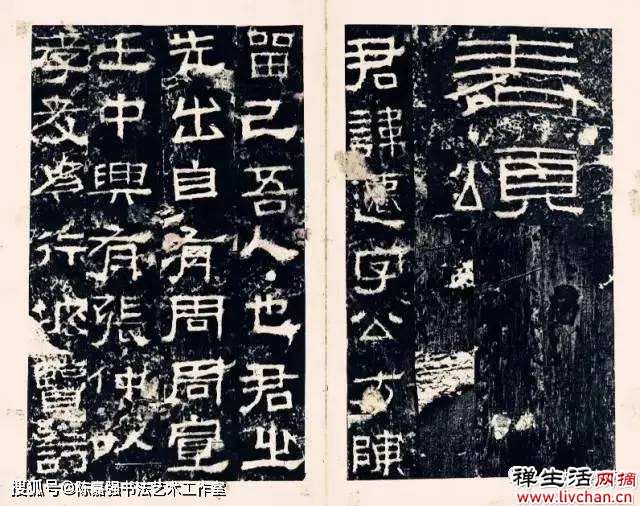 表頌
君諱遷字公方陳
留己吾人也君之
先出自有周周宣
王中興有張仲以
孝友為行披覽詩
搜狐号@陈嘉强书法艺术工作室
禅生活网摘
www.livchan.cn